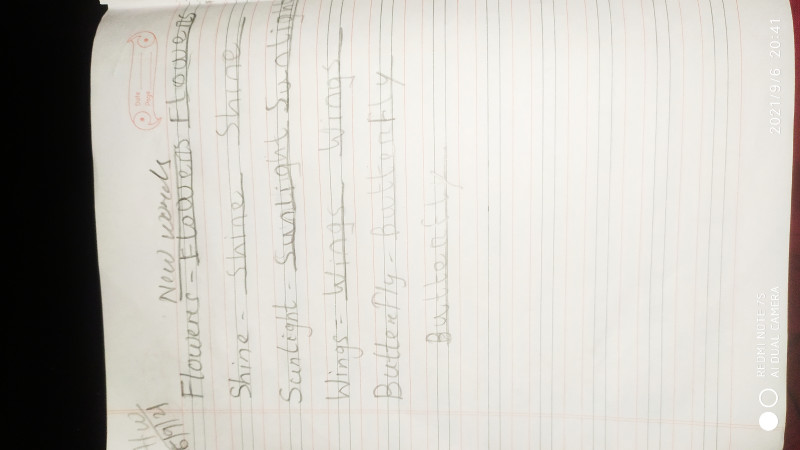 H.W
6/9/21
Date
Page
New words
Flowers - Flowers Flowers
Shine - Shine Shine
Sunlight - Sunlight Sunlight
Wings - Wings Wings
Butterfly - Butterfly
Butterfly
REDMI NOTE 7S
AI DUAL CAMERA
2021/9/6 20:41